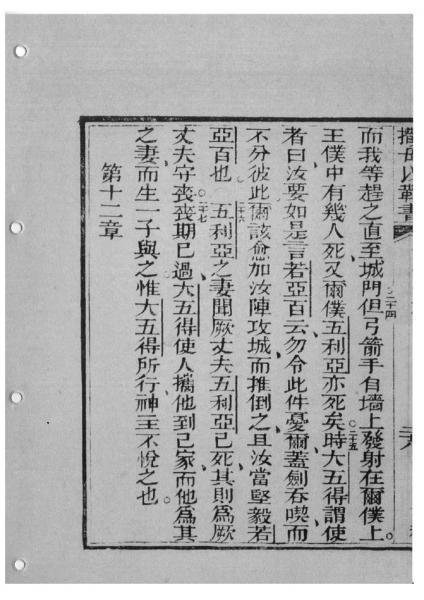 而我等趕之直至城門二十四但弓箭手自墻上發射在爾僕上。
王僕中有幾人死、又爾僕五利亞亦死矣。二十五時大五得謂使
者曰、汝要如是言若亞百云、勿令此件憂爾、蓋劍吞喫而
不分彼此。爾該愈加汝陣攻城、而推倒之、且汝當堅毅若
亞百也。二十六五利亞之妻聞厥丈夫五利亞已死、其則為厥
丈夫守喪。二十七喪期已過、大五得使人擕他到己家、而他為其
之妻、而生一子與之、惟大五得所行、神主不悅之也。
第十二章